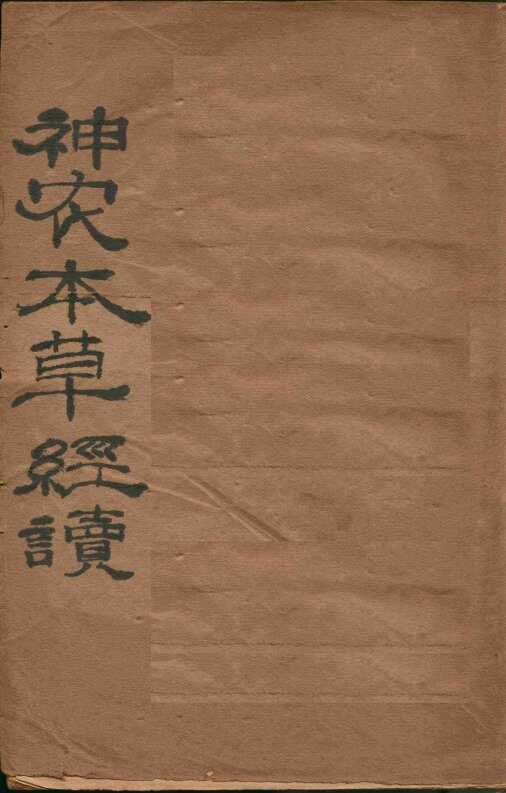 神农本草經讀